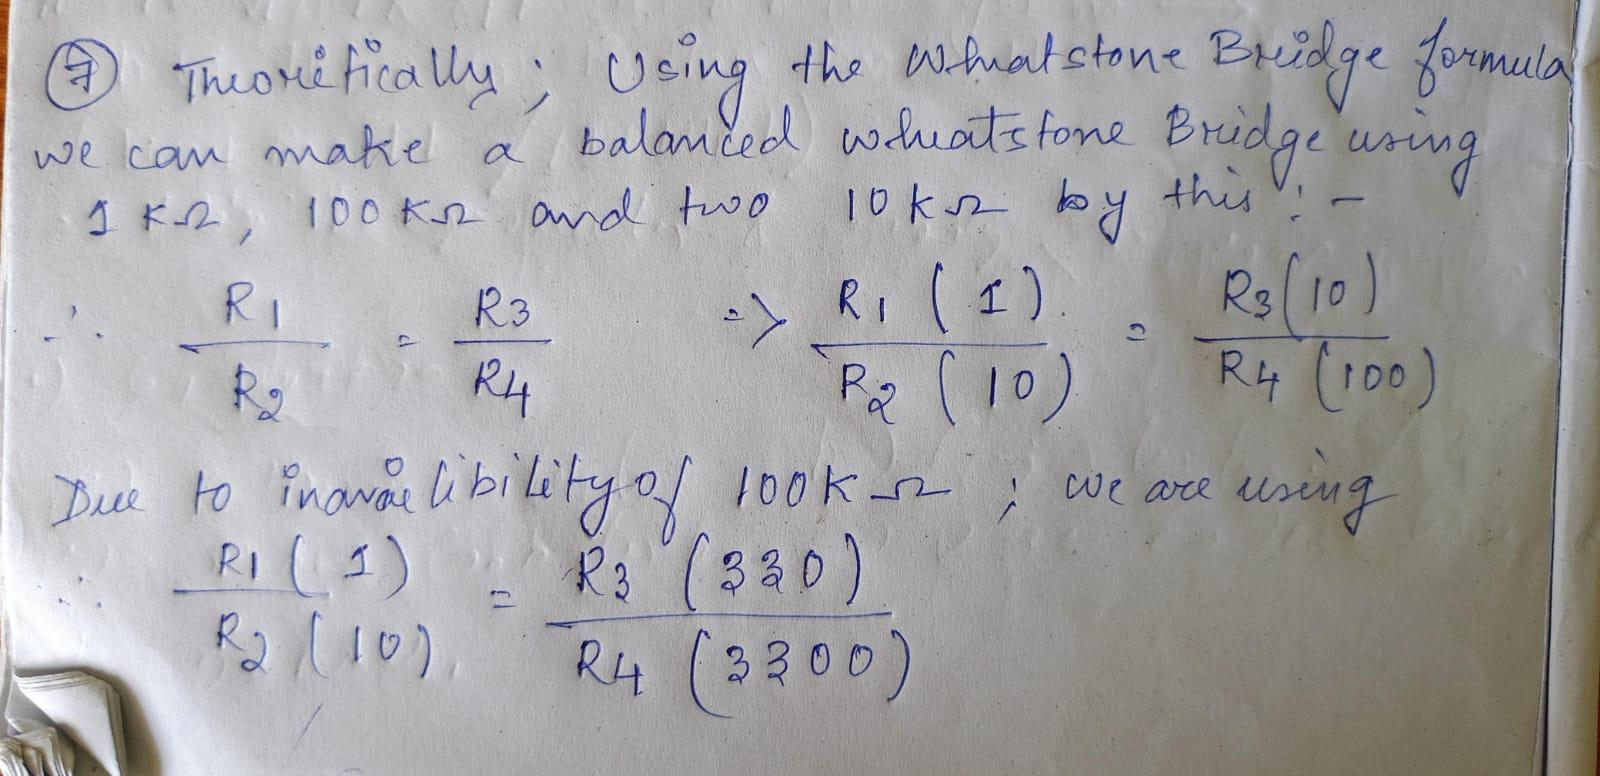 ⑦ Theoritically ; Using the Wheatstone Bridge formula
we can make a balanced wheatstone Bridge using
1 KΩ, 100 KΩ and two 10 KΩ by this : -
∴ R1 / R2 = R3 / R4 => R1 (1) / R2 (10) = R3 (10) / R4 (100)
Due to inavailibility of 100K Ω ; we are using
∴ R1 (1) / R2 (10) = R3 (330) / R4 (3300)